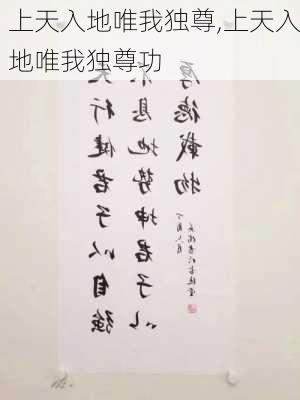 上天入地唯我独尊,上天入
地唯我独尊功
天行健君子以自強
不息地势坤君子以
厚德載物
丁酉六月